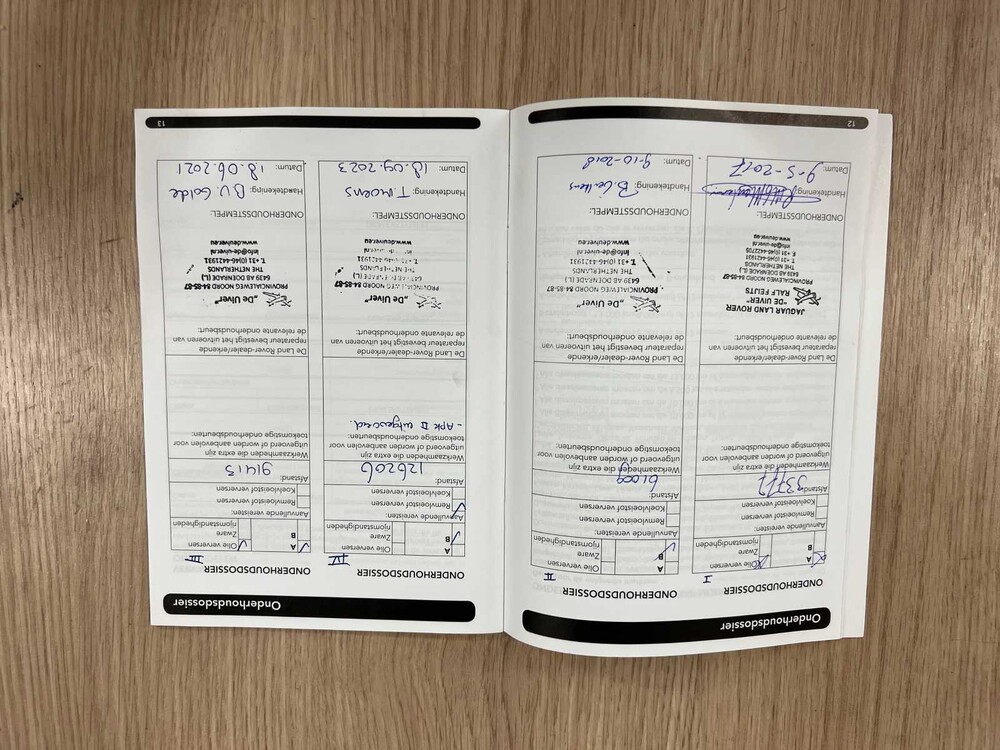 Onderhoudsdossier
ONDERHOUDSDOSSIER I
A
B
Olie verversen
Zware
rijomstandigheden
Aanvullende vereisten:
Remvloeistof verversen
Koelvloeistof verversen
Afstand:
Werkzaamheden die extra zijn
uitgevoerd of worden aanbevolen voor
toekomstige onderhoudsbeurten:
De Land Rover-dealer/erkende
reparateur bevestigt het uitvoeren van
de relevante onderhoudsbeurt:
JAGUAR LAND ROVER
"DE UIVER"
RALF FEIJTS
PROVINCIALEWEG NOORD
6439 AB DOENRADE (L.)
THE NETHERLANDS
T. +31 (0)46-4421931
F. +31 (0)46-4422705
info@de-uiver.nl
www.deuiver.eu
ONDERHOUDSSTEMPEL:
Handtekening:
Datum: 9-5-2017
ONDERHOUDSDOSSIER II
A
B
Olie verversen
Zware
rijomstandigheden
Aanvullende vereisten:
Remvloeistof verversen
Koelvloeistof verversen
Afstand: 61009
Werkzaamheden die extra zijn
uitgevoerd of worden aanbevolen voor
toekomstige onderhoudsbeurten:
De Land Rover-dealer/erkende
reparateur bevestigt het uitvoeren van
de relevante onderhoudsbeurt:
„De Uiver"
PROVINCIALEWEG NOORD 84-85-87
6439 AB DOENRADE (L.)
THE NETHERLANDS
T. +31 (0)46-4421931
info@de-uiver.nl
www.deuiver.eu
ONDERHOUDSSTEMPEL:
Handtekening: B.
Datum: 9-10-2018
12
Onderhoudsdossier
ONDERHOUDSDOSSIER IV
A
B
Olie verversen
Zware
rijomstandigheden
Aanvullende vereisten:
Remvloeistof verversen
Koelvloeistof verversen
Afstand: 126206
Werkzaamheden die extra zijn
uitgevoerd of worden aanbevolen voor
toekomstige onderhoudsbeurten:
- APK II uitgevoerd.
De Land Rover-dealer/erkende
reparateur bevestigt het uitvoeren van
de relevante onderhoudsbeurt:
„De Uiver"
NOORD 84-85-87
THE NETHERLANDS
T. +31 (0)46-4421931
www.deuiver.eu
ONDERHOUDSSTEMPEL:
Handtekening: T.
Datum: 18.09.2023
ONDERHOUDSDOSSIER III
A
B
Olie verversen
Zware
rijomstandigheden
Aanvullende vereisten:
Remvloeistof verversen
Koelvloeistof verversen
Afstand: 91413
Werkzaamheden die extra zijn
uitgevoerd of worden aanbevolen voor
toekomstige onderhoudsbeurten:
De Land Rover-dealer/erkende
reparateur bevestigt het uitvoeren van
de relevante onderhoudsbeurt:
„De Uiver"
PROVINCIALEWEG NOORD 84-85-87
6439 AB DOENRADE (L.)
THE NETHERLANDS
T. +31 (0)46-4421931
info@de-uiver.nl
www.deuiver.eu
ONDERHOUDSSTEMPEL:
Handtekening: B.V. Golde
Datum: 18.06.2021
13